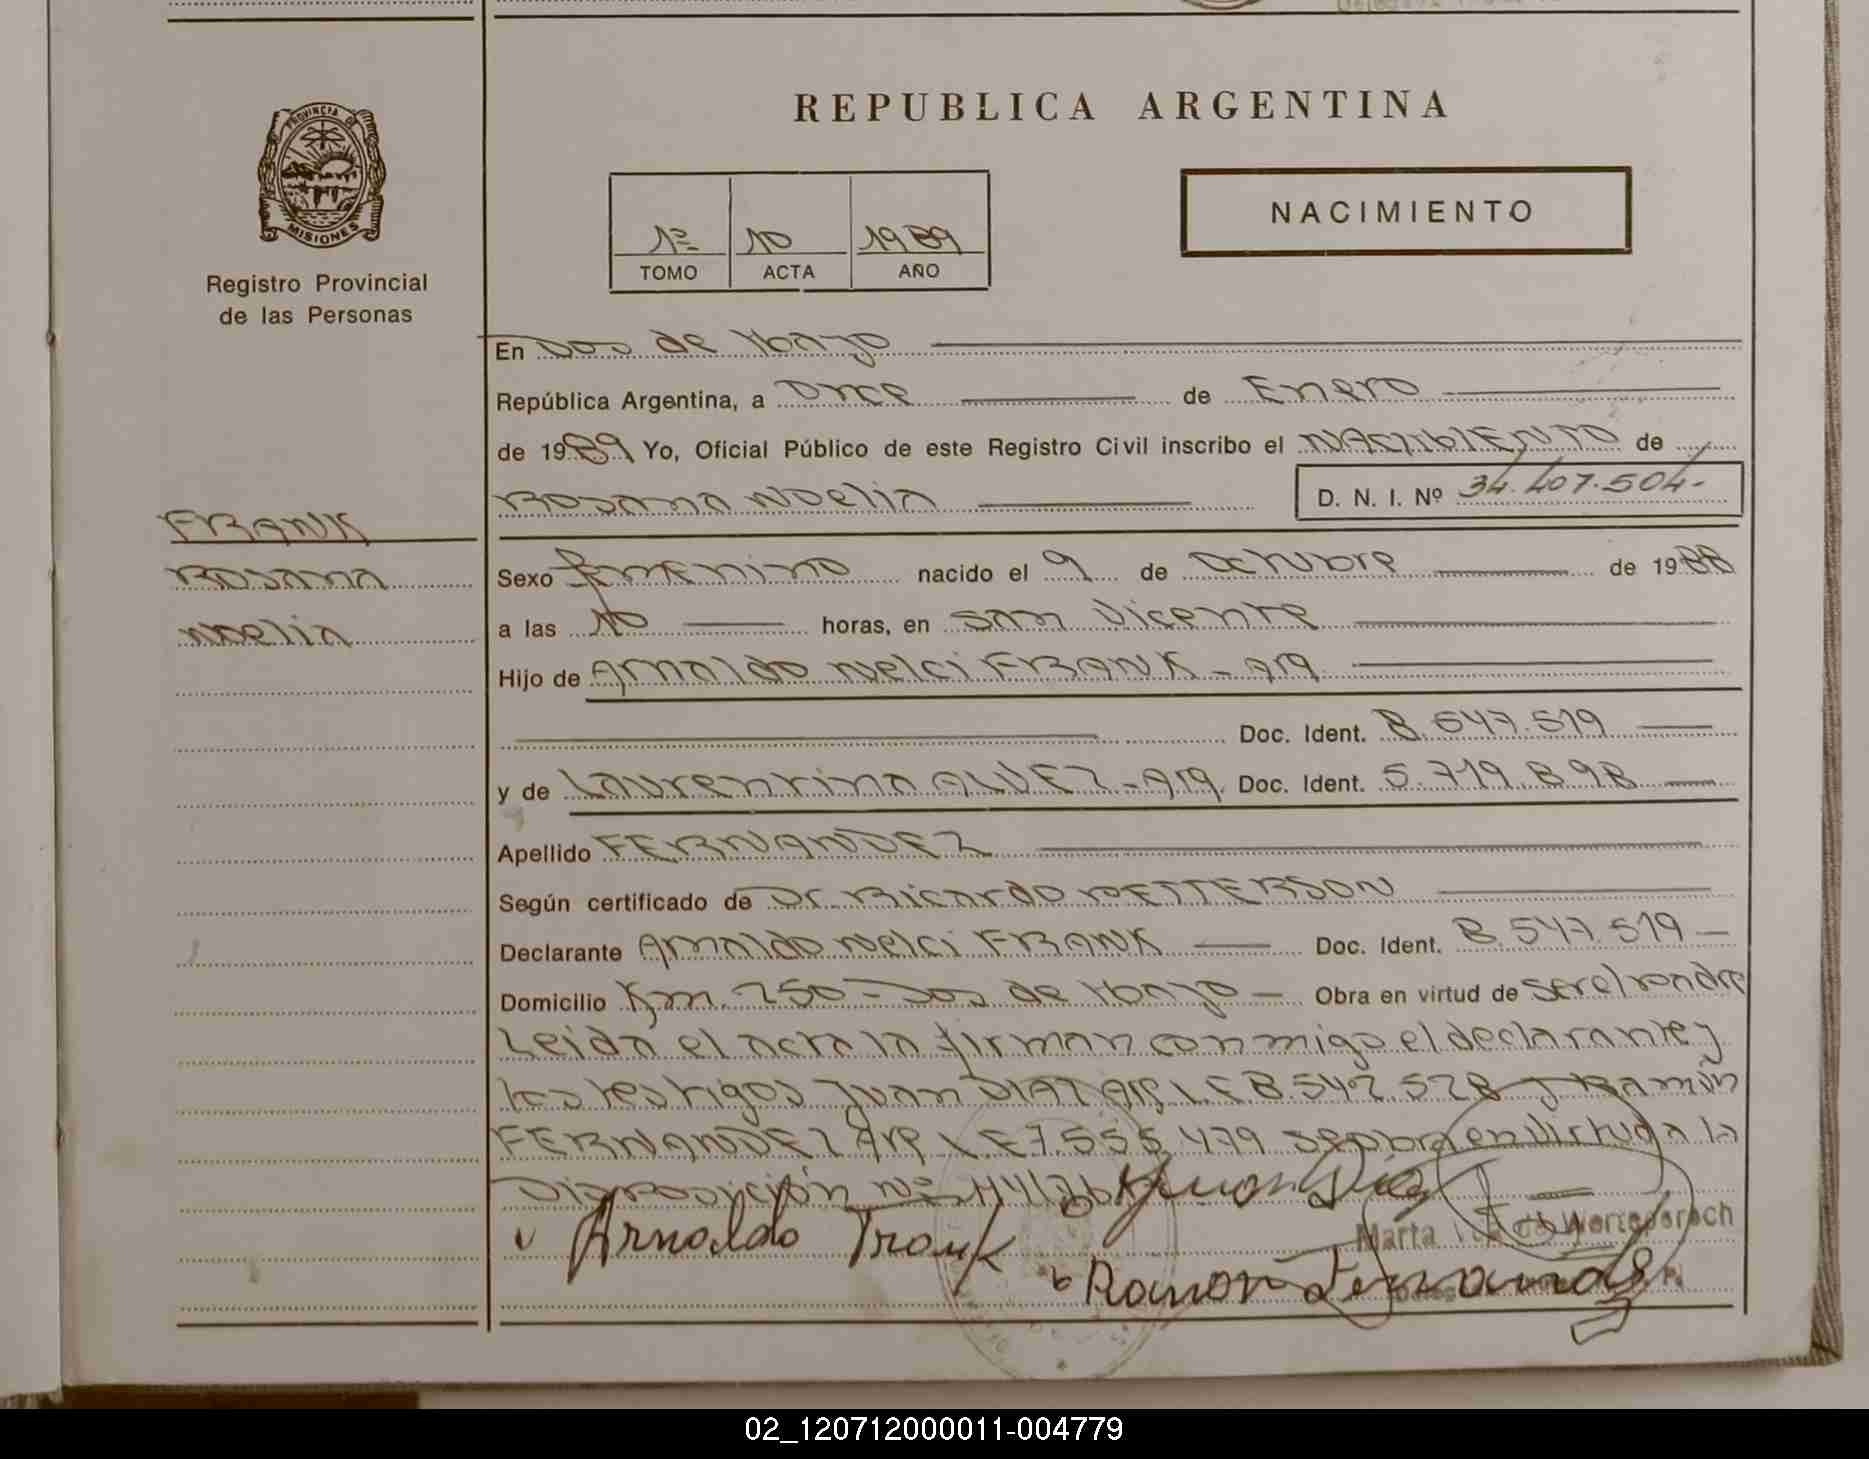 REPUBLICA ARGENTINA
PROVINCIA DE
MISIONES
Registro Provincial
de las Personas
1º 10 1989
TOMO ACTA AÑO
NACIMIENTO
En Dos de Mayo
República Argentina, a Once de Enero
de 1989 Yo, Oficial Público de este Registro Civil inscribo el NACIMIENTO de
Rosana Noelia D. N. I. Nº 34.407.504-
FRANK
Rosana
Noelia
Sexo femenino nacido el 9 de Octubre de 1988
a las 10 horas, en San Vicente
Hijo de Arnaldo Nelci FRANK - Arg
Doc. Ident. 8.547.519
y de Laurentina ALVEZ - Arg. Doc. Ident. 5.719.898
Apellido FERNANDEZ
Según certificado de Dr. Ricardo PETTERSON
Declarante Arnaldo Nelci FRANK Doc. Ident. 8.547.519
Domicilio Km. 250 - Dos de Mayo Obra en virtud de ser el padre
Leida el acta la firman conmigo el declarante y
los testigos Juan DIAZ Arg L.E 8.542.528 y Ramón
FERNANDEZ Arg L.E 7.555.479 se labra en virtud a la
Disposición nº
Juan Díaz
Arnaldo Frank
Marta
Ramon Fernandez
02_120712000011-004779